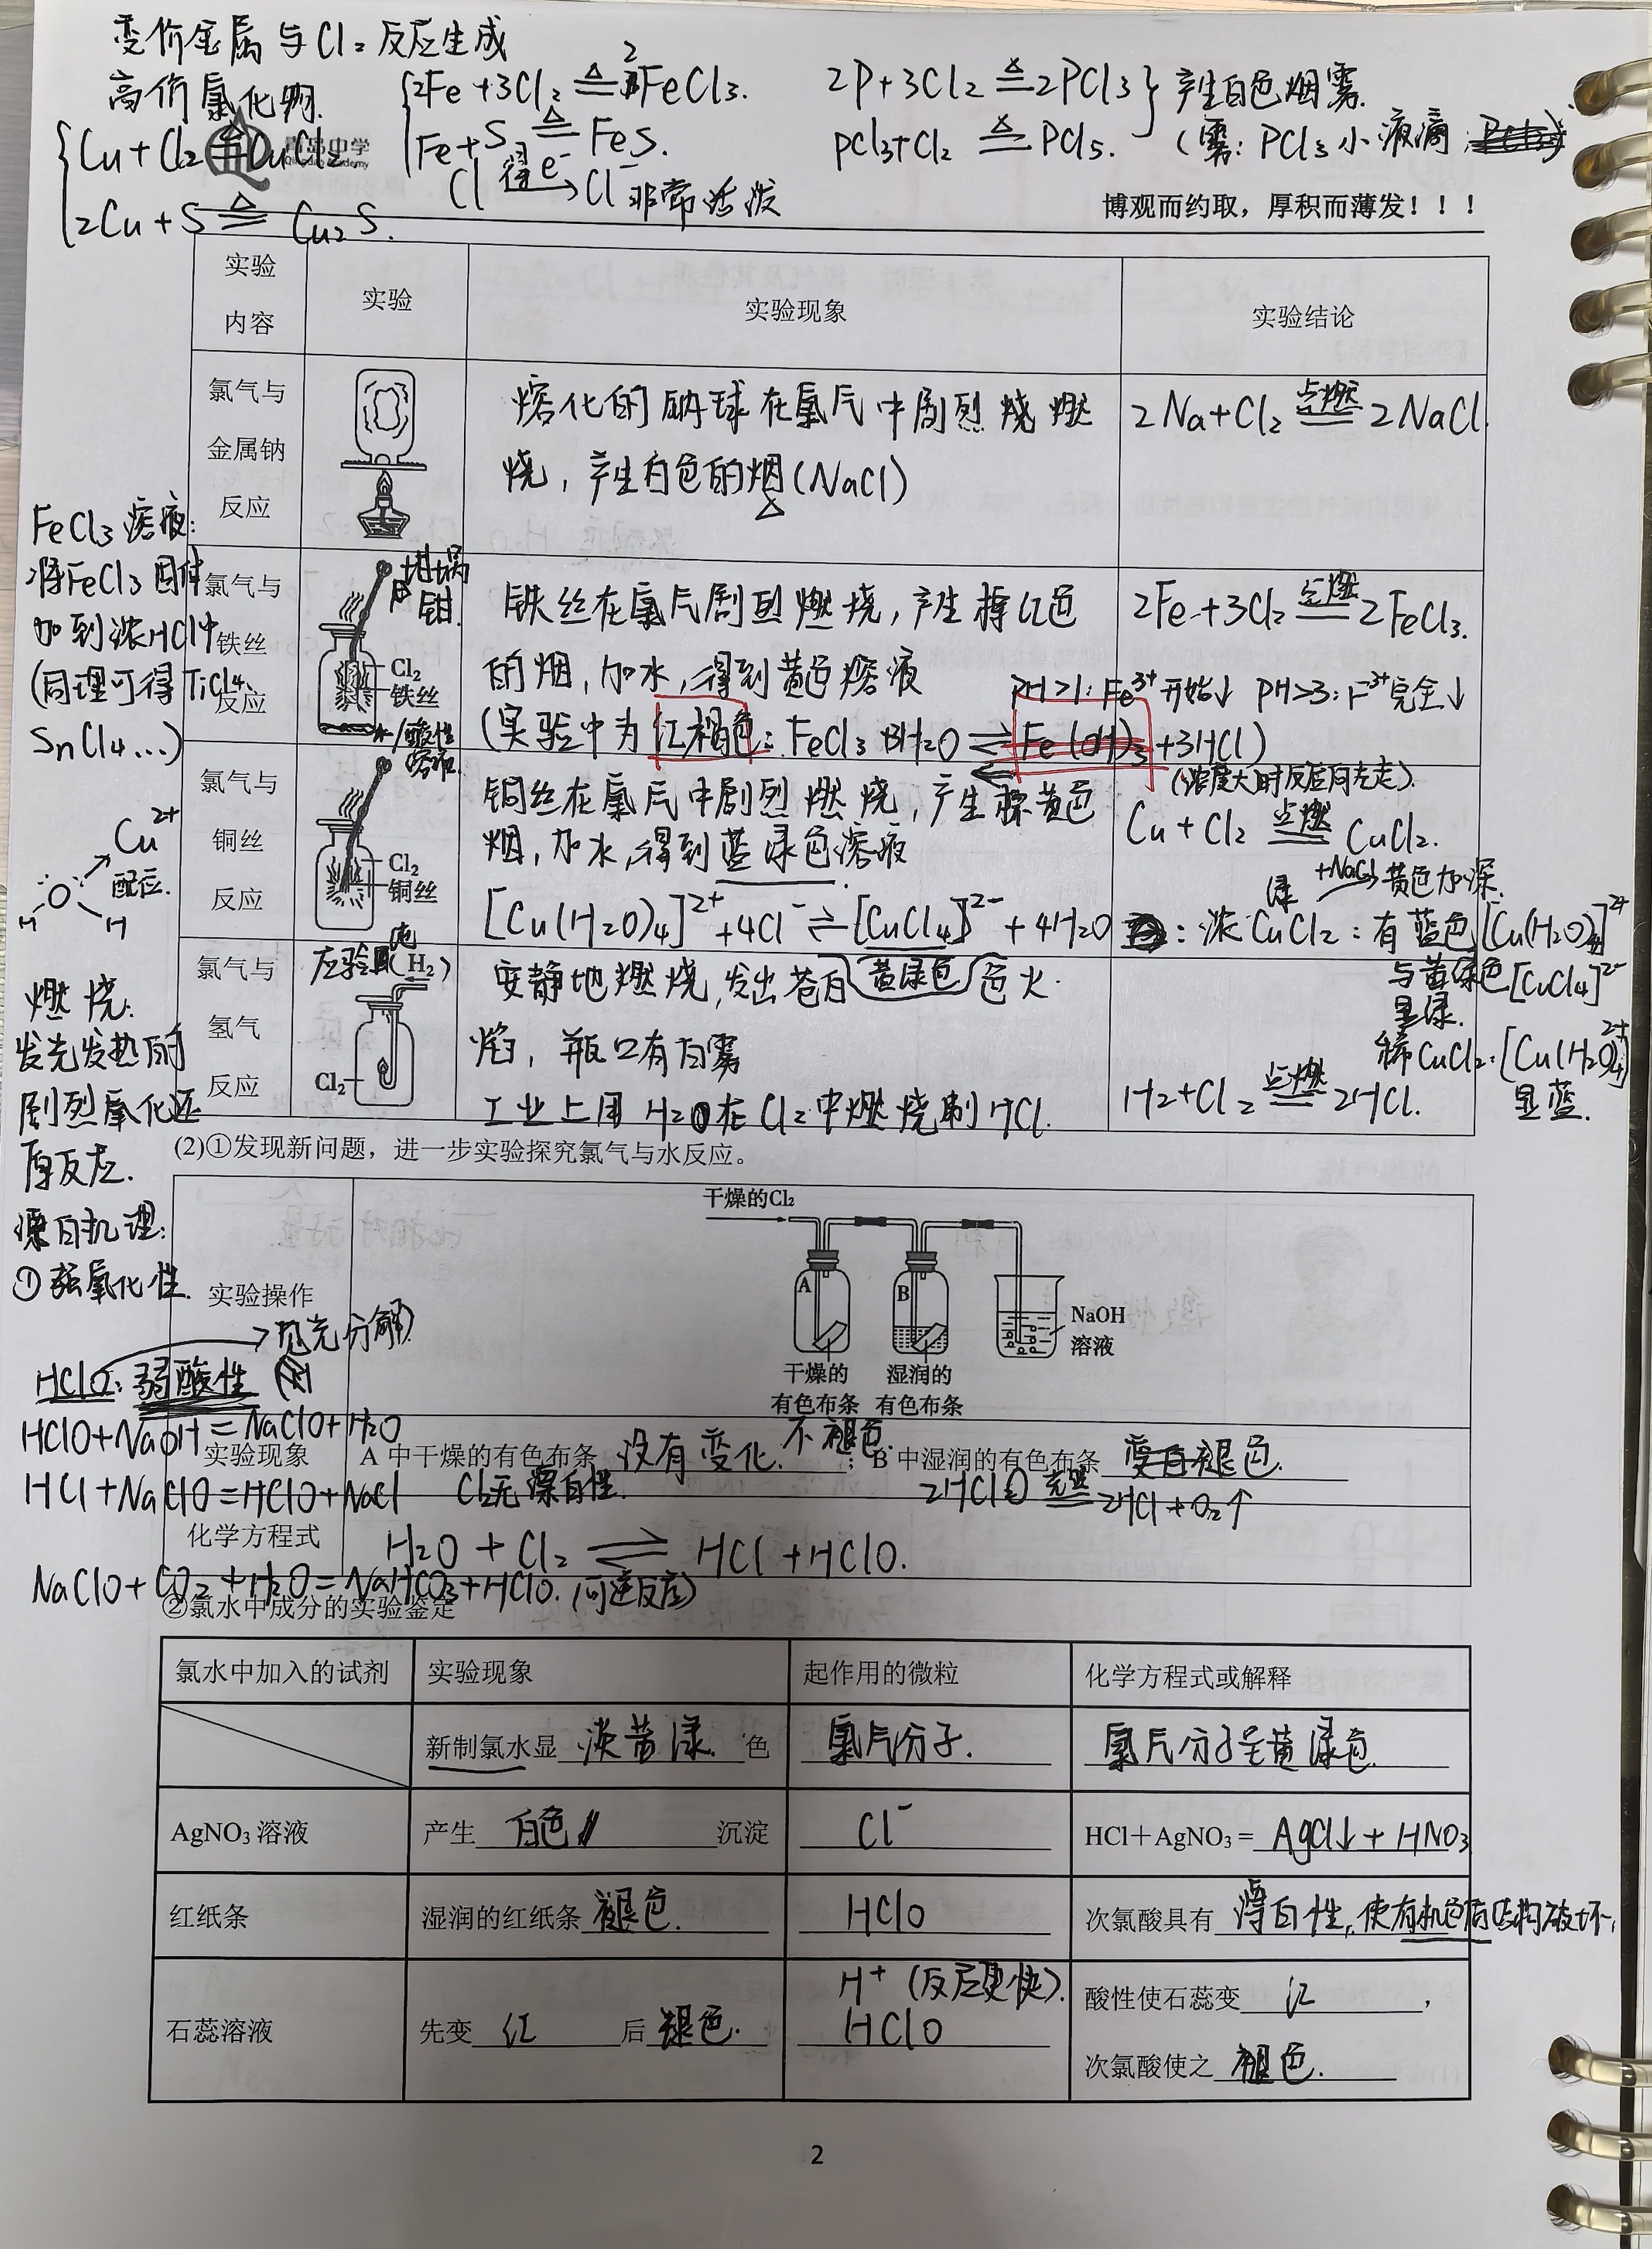 变价金属与Cl₂反应生成
高价氯化物.
2Fe+3Cl₂ ≜ 2FeCl₃.
Fe+S ≜ FeS.
Cl 得e⁻→ Cl⁻ 非常活泼
2P+3Cl₂ ≜ 2PCl₃
PCl₃+Cl₂ ≜ PCl₅.
产生白色烟雾.
(雾: PCl₃小液滴
Cu+Cl₂ ≜ CuCl₂
2Cu+S ≜ Cu₂S.
青岛中学
Qingdao Academy
博观而约取，厚积而薄发！！！
实验内容 实验 实验现象 实验结论
氯气与金属钠反应
熔化的钠球在氯气中剧烈烧燃
烧，产生白色的烟(NaCl)
2Na+Cl₂ 点燃 2NaCl.
FeCl₃溶液:
将FeCl₃固体
加到浓HCl中
(同理可得TiCl₄、
SnCl₄...)
氯气与铁丝反应
坩埚钳
Cl₂
铁丝
水/酸性溶液.
铁丝在氯气剧烈燃烧，产生棕红色
的烟，加水，得到黄色溶液
PH>1: Fe³⁺开始↓ PH>3: F³⁺完全↓
(实验中为红褐色: FeCl₃+3H₂O ⇌ Fe(OH)₃+3HCl)
(浓度大时反应向左走).
2Fe+3Cl₂ 点燃 2FeCl₃.
Cu²⁺
配位.
O
H H
氯气与铜丝反应
Cl₂
铜丝
铜丝在氯气中剧烈燃烧，产生棕黄色
烟，加水，得到蓝绿色溶液.
[Cu(H₂O)₄]²⁺+4Cl⁻ ⇌ [CuCl₄]²⁻+4H₂O
Cu+Cl₂ 点燃 CuCl₂.
绿 +NaCl→ 黄色加深.
: 浓CuCl₂: 有蓝色[Cu(H₂O)₄]²⁺
与黄绿色[CuCl₄]²⁻
显绿.
稀CuCl₂: [Cu(H₂O)₄]²⁺
显蓝.
燃烧:
发光发热的
剧烈氧化还
原反应.
氯气与氢气反应
应验纯(H₂)
Cl₂
安静地燃烧，发出苍白(黄绿色)色火
焰，瓶口有白雾
工业上用H₂在Cl₂中燃烧制HCl.
H₂+Cl₂ 点燃 2HCl.
(2)①发现新问题，进一步实验探究氯气与水反应。
漂白机理:
①强氧化性.
实验操作
干燥的Cl₂
A
B
干燥的有色布条
湿润的有色布条
NaOH溶液
→见光分解
HClO: 弱酸性
HClO+NaOH=NaClO+H₂O
HCl+NaClO=HClO+NaCl
实验现象
A 中干燥的有色布条 没有变化. 不褪色. ；B 中湿润的有色布条 变白褪色.
Cl₂无漂白性.
2HClO 光照 2HCl+O₂↑
化学方程式
H₂O+Cl₂ ⇌ HCl+HClO.
NaClO+CO₂+H₂O=NaHCO₃+HClO. (可逆反应)
②氯水中成分的实验鉴定
氯水中加入的试剂 实验现象 起作用的微粒 化学方程式或解释
新制氯水显 淡黄绿. 色 氯气分子. 氯气分子呈黄绿色.
AgNO₃ 溶液 产生 白色 沉淀 Cl⁻ HCl＋AgNO₃＝AgCl↓+HNO₃
红纸条 湿润的红纸条 褪色. HClO 次氯酸具有 漂白性，使有机色质结构破坏.
石蕊溶液 先变 红 后 褪色. H⁺ (反应更快). HClO 酸性使石蕊变 红 ，
次氯酸使之 褪色.
2